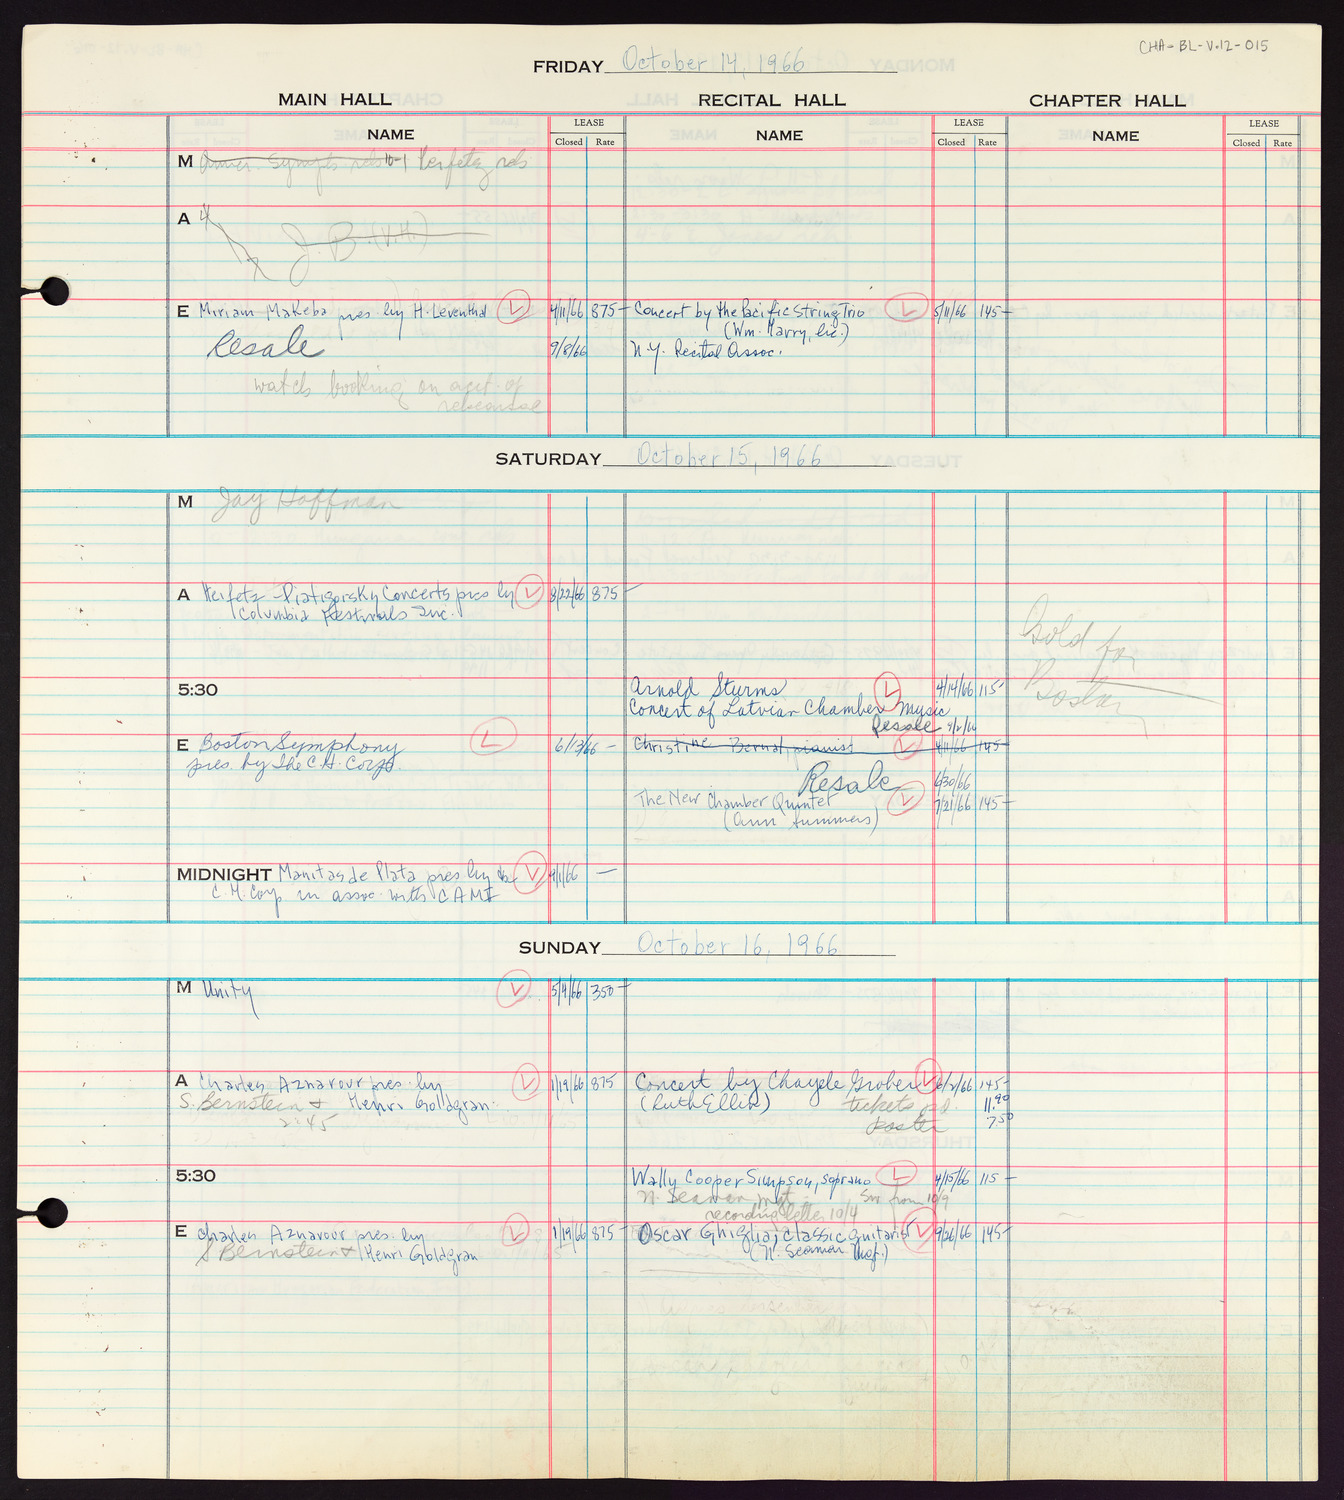 CHA-BL-V.12-015
FRIDAY October 14, 1966
MAIN HALL RECITAL HALL CHAPTER HALL
NAME LEASE Closed Rate NAME LEASE Closed Rate NAME LEASE Closed Rate
M Amer. Symph reh 10-1 Heifetz reh
A 4
J.B. (V.H.)
E Miriam Makeba pres. by H. Leventhal L 4/11/66 875- Concert by the Pacific String Trio L 5/11/66 145-
(Wm. Harry, Inc.)
Resale 9/8/66 N.Y. Recital Assoc.
watch booking on acct. of
rehearsal
SATURDAY October 15, 1966
M Jay Hoffman
A Heifetz-Piatigorsky Concerts pres by L 3/22/66 875-
Columbia Festivals Inc.
Hold for
Boston
5:30 Arnold Sturms L 4/14/66 115-
Concert of Latvian Chamber Music
Resale
E Boston Symphony L 6/13/66 - Christine Bernat, pianist L 4/11/66 145-
pres. by The C.H. Corp.
Resale 6/30/66
The New Chamber Quintet L 7/21/66 145-
(Ann Summers)
MIDNIGHT Manitas de Plata pres by the L 9/1/66 -
C.H. Corp in assoc. with CAMI
SUNDAY October 16, 1966
M Unity L 5/4/66 350-
A Charles Aznavour pres. by L 1/19/66 875 Concert by Chayele Grober L 6/2/66 145-
S. Bernstein & Henri Goldgran (Ruth Ellin) tickets pd. 11.90
2:45 poster 7.50
5:30 Wally Cooper Simpson, soprano L 4/15/66 115-
N. Seaman mgt. from 10/9
recording letter 10/4
E Charles Aznavour pres. by L 1/19/66 875- Oscar Ghiglia, classic guitarist L 9/26/66 145-
S Bernstein & Henri Goldgran (N. Seaman Mgt.)